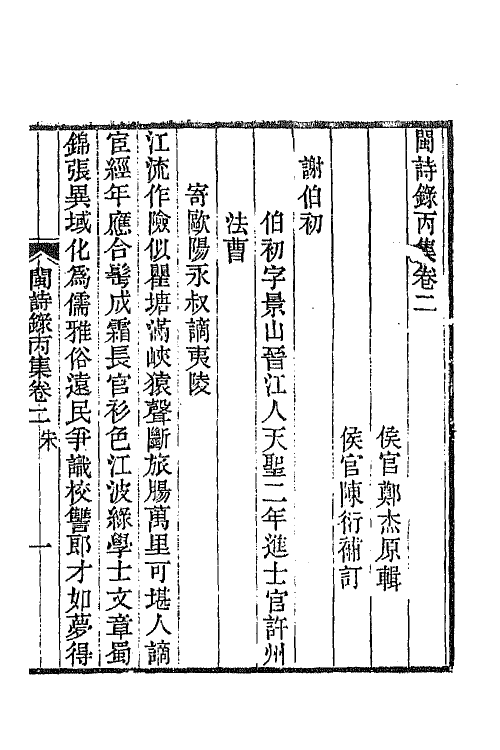 閩詩錄丙集卷二
侯官鄭杰原輯
侯官陳衍補訂
謝伯初
伯初字景山晉江人天聖二年進士官許州
法曹
寄歐陽永叔謫夷陵
江流作險似瞿塘滿峽猿聲斷旅腸萬里可堪人謫
宦經年應合鬢成霜長官衫色江波綠學士文章蜀
錦張異域化爲儒雅俗遠民爭識校讐郎才如夢得
閩詩錄丙集卷二 朱 一